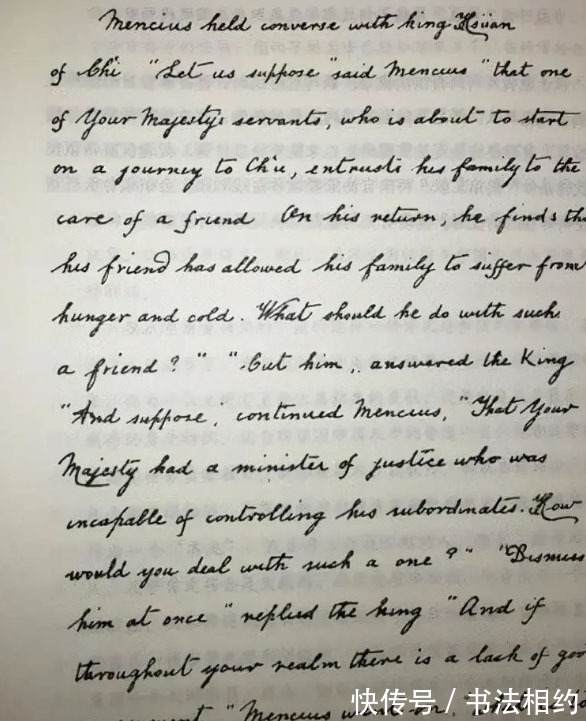 Mencius held converse with king Hsüan
of Ch'i "Let us suppose" said Mencius "that one
of Your Majestys servants, who is about to start
on a journey to Ch'u, entrusts his family to the
care of a friend On his return, he finds tha
his friend has allowed his family to suffer from
hunger and cold. What should he do with such
a friend?" "Cut him, answered the King
"And suppose, continued Mencius, "That Your
Majesty had a minister of justice who was
incapable of controlling his subordinates. How
would you deal with such a one?" "Dismiss
him at once" replied the king "And if
throughout your realm there is a lack of gov
"Mencius went on "what
快传号 / 书法相约